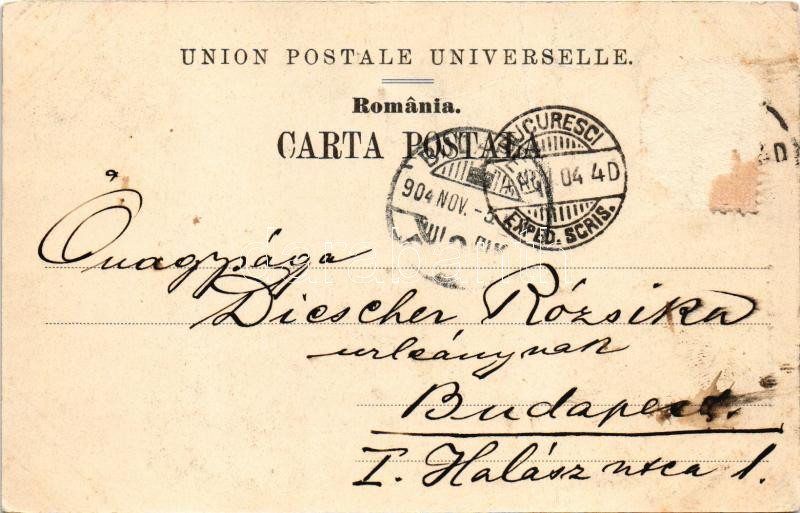 UNION POSTALE UNIVERSELLE.
România.
CARTA POSTALA
BUCURESCI
04 4D
EXPED. SCRIS.
904 NOV. -
4D
Ő nagysága
Diescher Rózsika
urleánynak
Budapest.
I. Halász utca 1.